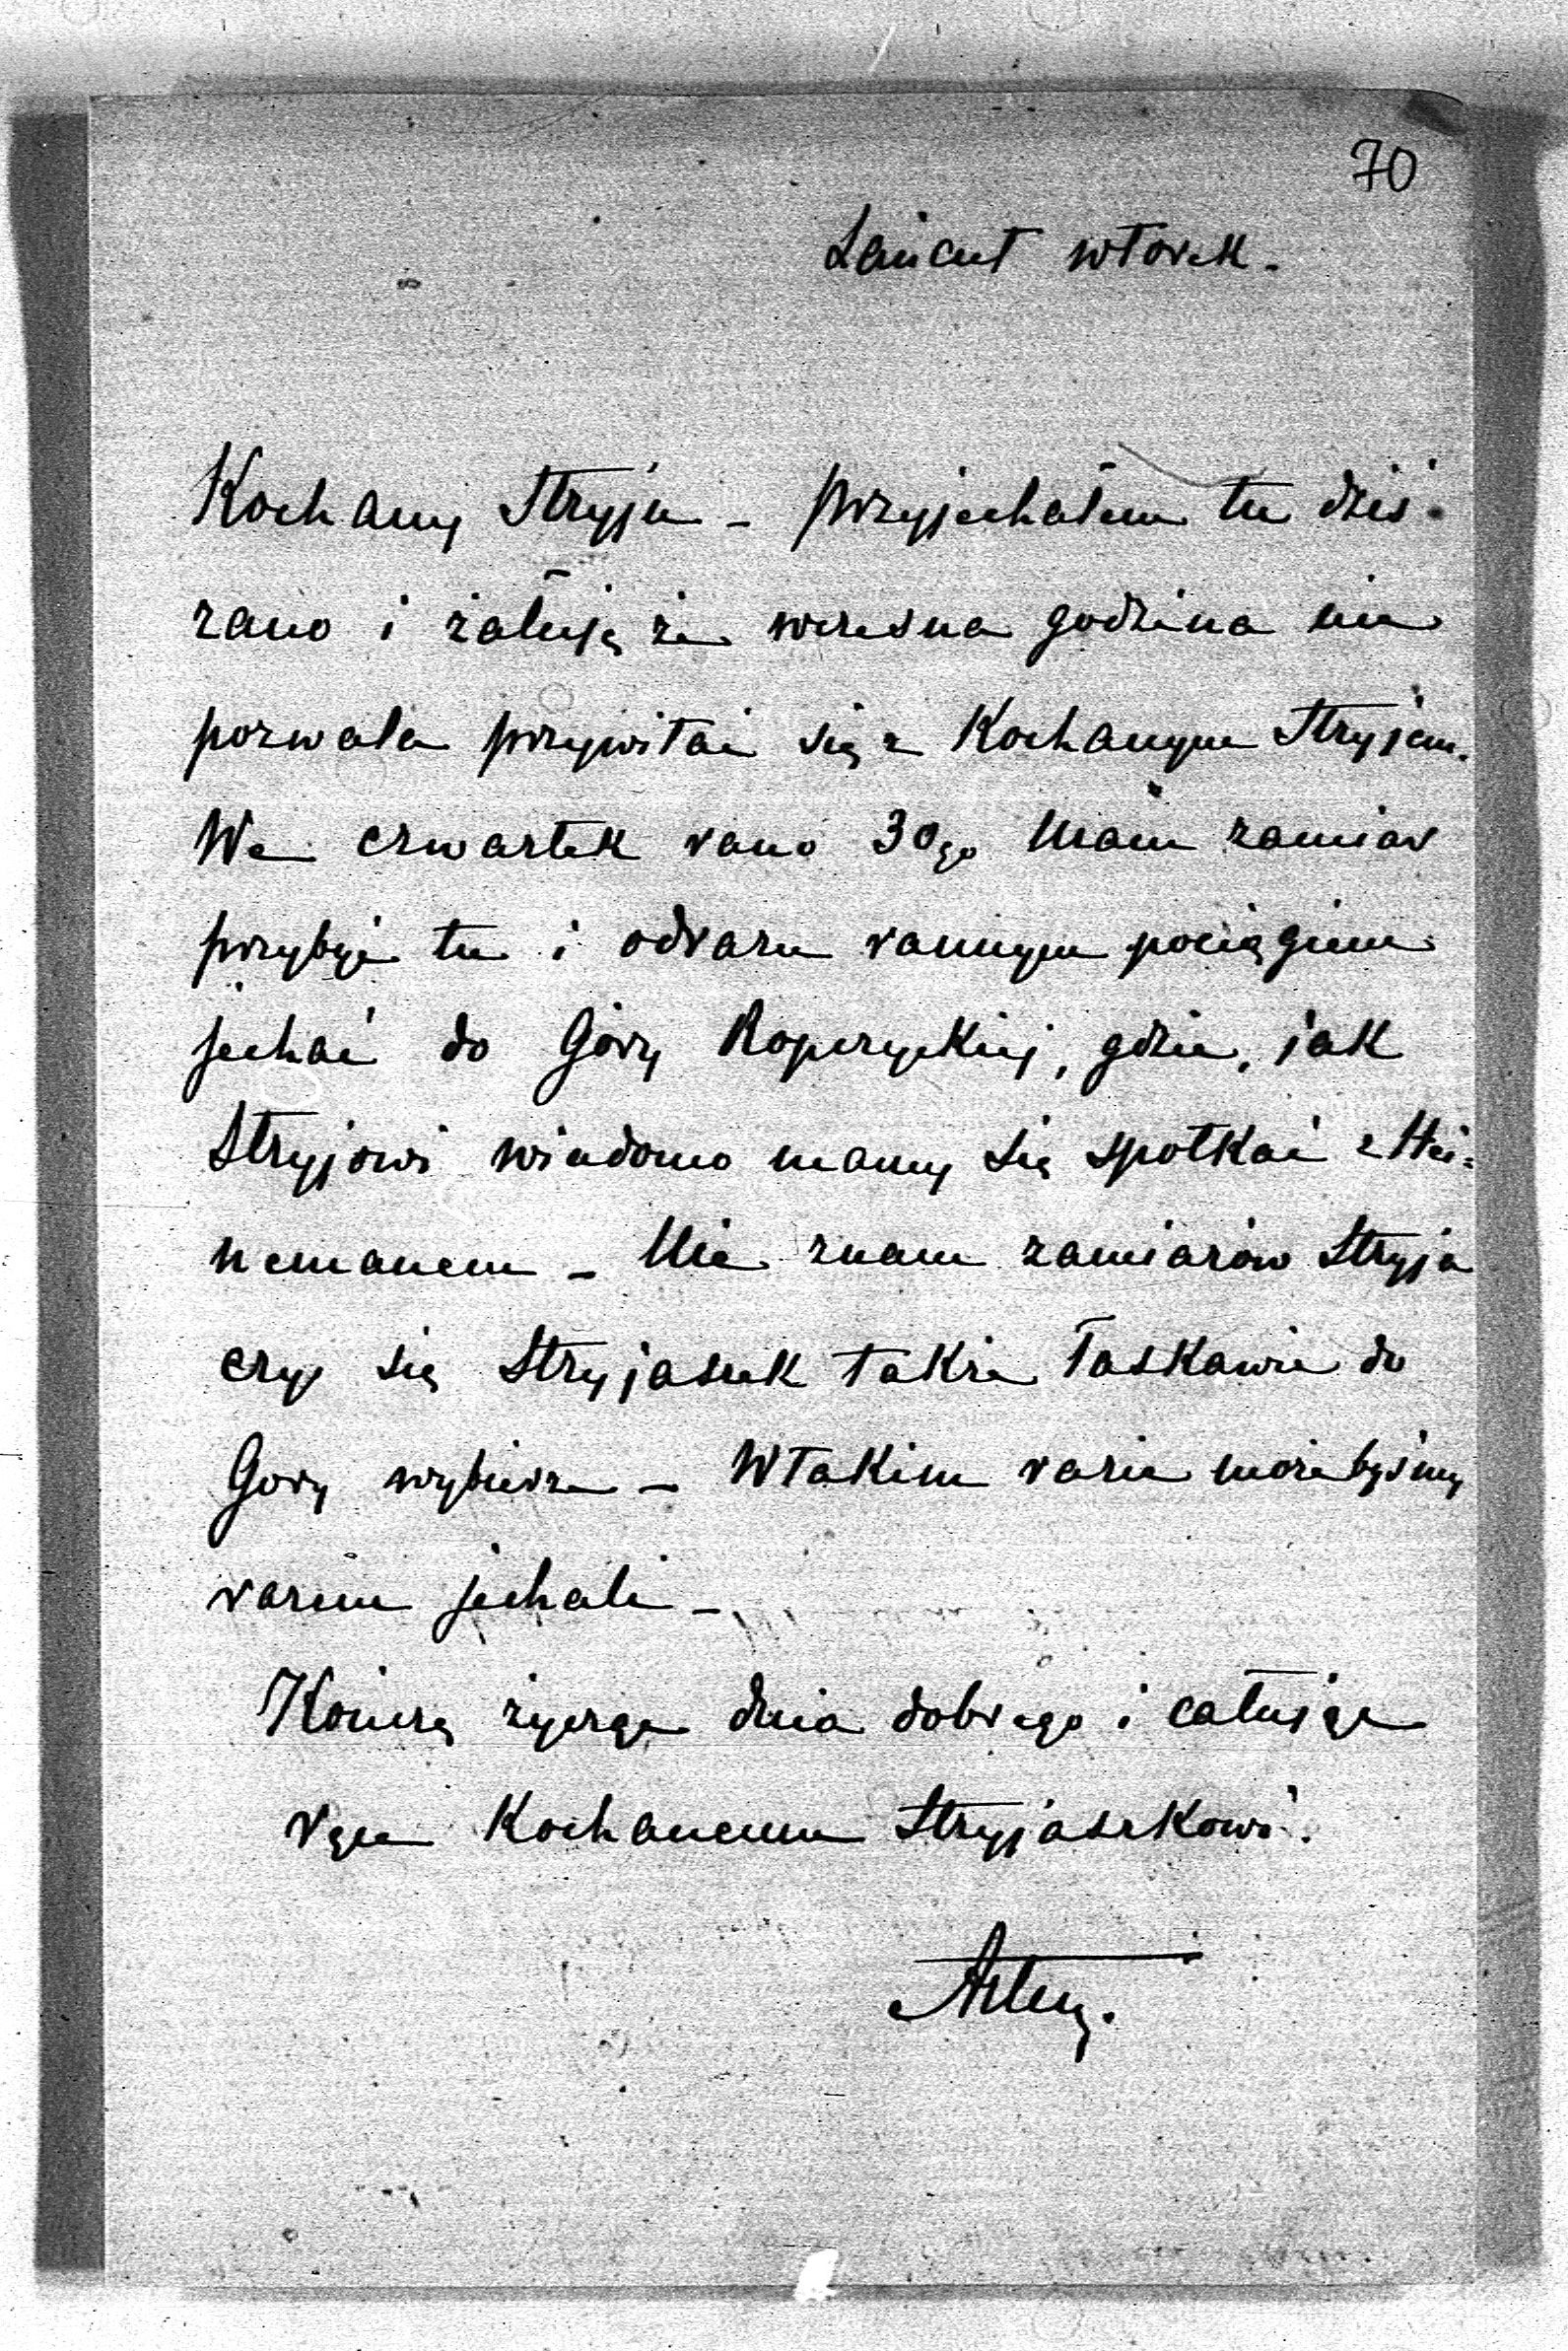 70
Łańcut wtorek.
Kochany Stryju – przyjechałem tu dziś
rano i żałuję że wczesna godzina nie
pozwala przywitać się z Kochanym Stryjem.
We czwartek rano 30go mam zamiar
przybyć tu i odrazu rannym pociągiem
jechać do Góry Ropczyckiej, gdzie, jak
Stryjowi wiadomo mamy się spotkać z Hei=
nemanem – Nie znam zamiarów Stryja
czy się Stryjaszek także łaskawie do
Gory wybierze – W takim razie możebyśmy
razem jechali –
Kończę życząc dnia dobrego i całując
ręce Kochanemu Stryjaszkowi.